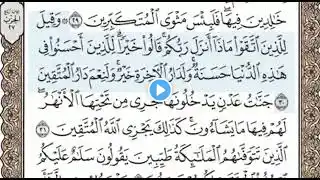 خَٰلِدِينَ فِيهَا ۖ فَلَبِئْسَ مَثْوَى ٱلْمُتَكَبِّرِينَ ٢٩ ۞ وَقِيلَ
لِلَّذِينَ ٱتَّقَوْا۟ مَاذَآ أَنزَلَ رَبُّكُمْ ۚ قَالُوا۟ خَيْرًا ۗ لِّلَّذِينَ أَحْسَنُوا۟ فِى
هَٰذِهِ ٱلدُّنْيَا حَسَنَةٌ ۚ وَلَدَارُ ٱلْءَاخِرَةِ خَيْرٌ ۚ وَلَنِعْمَ دَارُ ٱلْمُتَّقِينَ
٣٠ جَنَّٰتُ عَدْنٍ يَدْخُلُونَهَا تَجْرِى مِن تَحْتِهَا ٱلْأَنْهَٰرُ ۖ
لَهُمْ فِيهَا مَا يَشَآءُونَ ۚ كَذَٰلِكَ يَجْزِى ٱللَّهُ ٱلْمُتَّقِينَ ٣١
ٱلَّذِينَ تَتَوَفَّىٰهُمُ ٱلْمَلَٰٓئِكَةُ طَيِّبِينَ ۙ يَقُولُونَ سَلَٰمٌ عَلَيْكُمُ